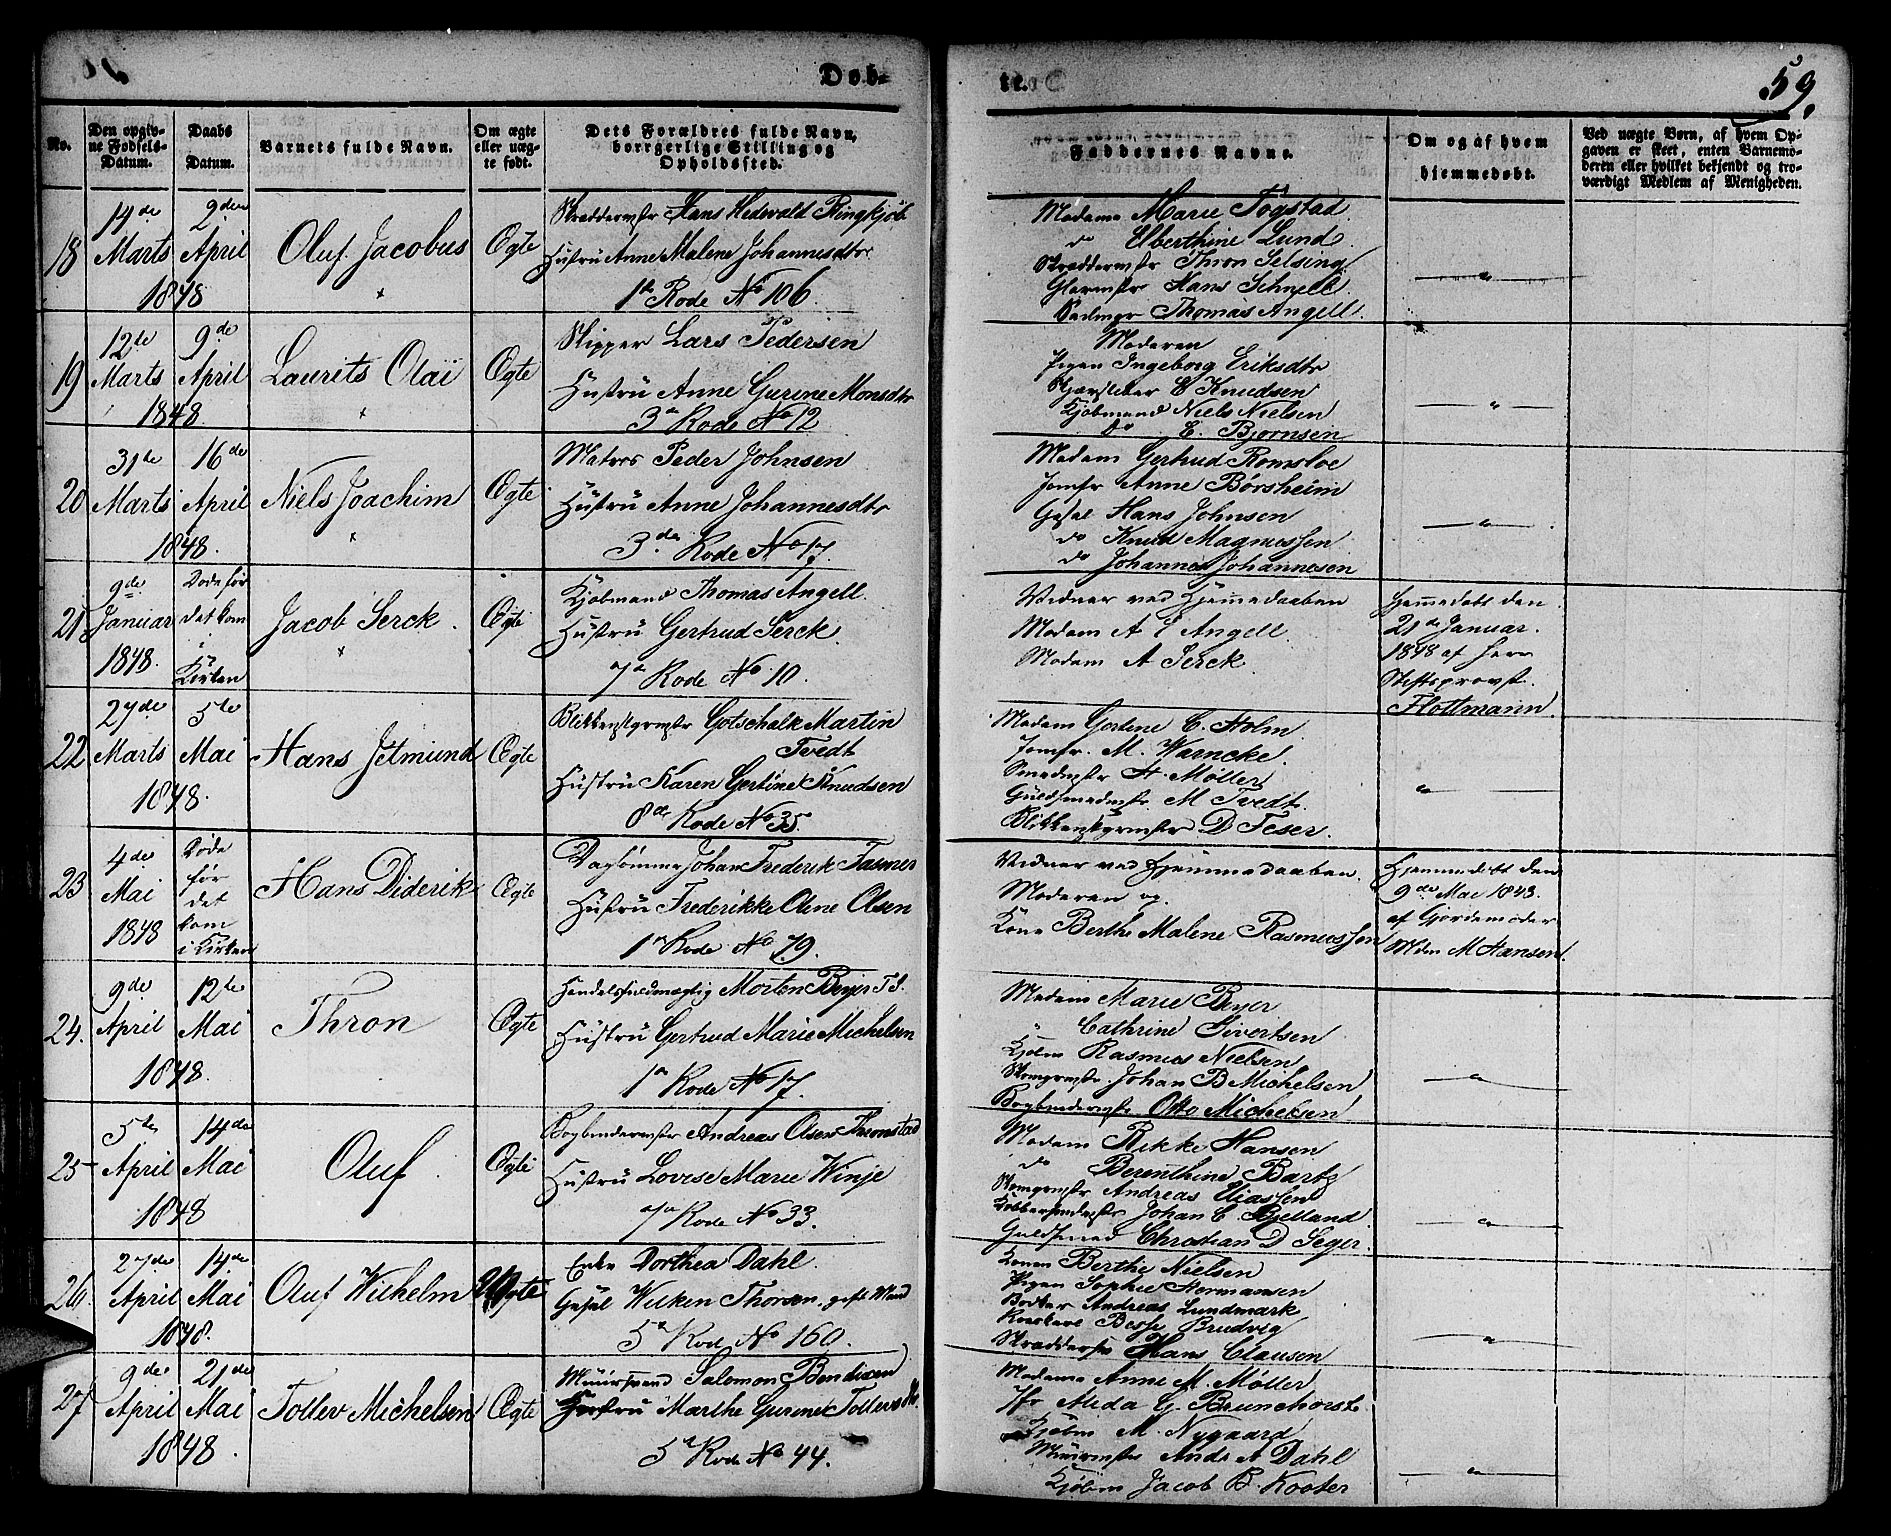 Døb-
te.
59.
No.
Den opgiv-
ne Fødsels-
Datum.
Daabs
Datum.
Barnets fulde Navn.
Om ægte
eller uæg-
te født.
Dets Forældres fulde Navn,
borgerlige Stilling og
Opholdssted.
Faddernes Navne.
Om og af hvem
hjemmedøbt.
Ved uægte Børn, af hvem Op-
gaven er skeet, enten Barnemo-
deren eller hvilket bekjendt og tro-
værdigt Medlem af Menigheden.
18
14de Marts 1848
2den April
Oluf Jacobus
Ægte
Skræddermstr Hans Hedevald Ringkjøb
Hustru Anne Malene Johannesdtr
1ste Rode No 106.
Madame Marie Fogstad
do Elberthine Lund
Skræddermstr Thron Selsing
Glarmstr Hans Schnell
Thomas Angell.
19
12te Marts 1848.
9de April
Laurits Olai
Ægte
Skipper Lars Pedersen
Hustru Anne Gurine Monsdtr
3de Rode No 12
Moderen
Pigen Ingeborg Eriksdtr
Knudsen
Kjøbmand Niels Nielsen
do E. Bjørnsen
20
31te Marts 1848.
16de April
Niels Joachim
Ægte
Matros Peder Johnsen
Hustru Anne Johannesdtr
3de Rode No 17.
Madam Gertrud Romsloe
Jomfr Anne Børsheim
Gesel Hans Johnsen
do Knud Magnussen
do Johannes Johannesen
21
9de Januar 1848.
Døde før
det kom
i
Kirken
Jacob Serck
Ægte
Kjøbmand Thomas Angell
Hustru Gertrud Serck
7de Rode No 10.
Vidner ved Hjemmedaaben
Madam A E Angell
Madam A Serck
Hjemmedøbt den
21de Januar
1848 af Herr
Stiftsprovst
Flottmann
22
27de Marts 1848.
5te Mai
Hans Jetmund
Ægte
Blikkenslgrmstr Gotschalk Martin
Tvedt
Hustru Karen Gertine Knudsen
8de Rode No 35.
Madam Gertine C. Holm
Jomfr. M. Warncke.
Smedmstr H. Møller
Guldsmedmstr M Tvedt
Blikkenslgrmstr D Feser.
23
4de Mai 1848
Døde
før
det
kom
i Kirken
Hans Diderik
Ægte
Daglønner Johan Frederik Fasmer
Hustru Frederikke Oline Olsen
1ste Rode No 79.
Vidner ved Hjemmedaaben.
Moderen og
Kone Berthe Malene Rasmussen
Hjemmedøbt den
9de Mai 1848.
af Gjordemoder
M Hansen
24.
9de April 1848.
12te Mai
Thron
Ægte
Handelsfuldmægtig Morten Beyer T.S.
Hustru Gertrud Marie Michelsen
1ste Rode No 17.
Madam Marie Beyer
Cathrine Sivertsen
Kjøbm Rasmus Nielsen
Johan B Michelsen
Bogbindermstr Otto Michelsen
25
5te April 1848
14de Mai
Oluf
Ægte
Bogbindermstr Andreas Olsen Thronstad
Hustru Lovise Marie Winje
7de Rode No 33.
Madam Rikke Hansen
do Berenthine Bartz
Andreas Eliassen
Kobberslmstr Johan C Bjelland
Guldsmed Christian D Seger
26.
27de April 1848.
14de Mai
Oluf Wilhelm
Uægte
Enke Dorthea Dahl.
Gesel Wilken Thorsen, gift Mand
5te Rode No 160.
Konen Berthe Nielsen
Pigen Sophie Hermansen
Bødker Andreas Lundmark
Besse Brudvig
Skrædder Hans Clausen
27
9de April 1848.
21de Mai
Tollev Michelsen
Ægte
Muursvend Salomon Bendixen
Hustru Marthe Gurine Tollevsdtr
5te Rode No 44.
Madame Anne M. Møller
Jfr Alida G. Brunchorst
Kjøbm M. Nygaard
Muurmstr Ands A Dahl
Kjøbm Jacob B. Kooter